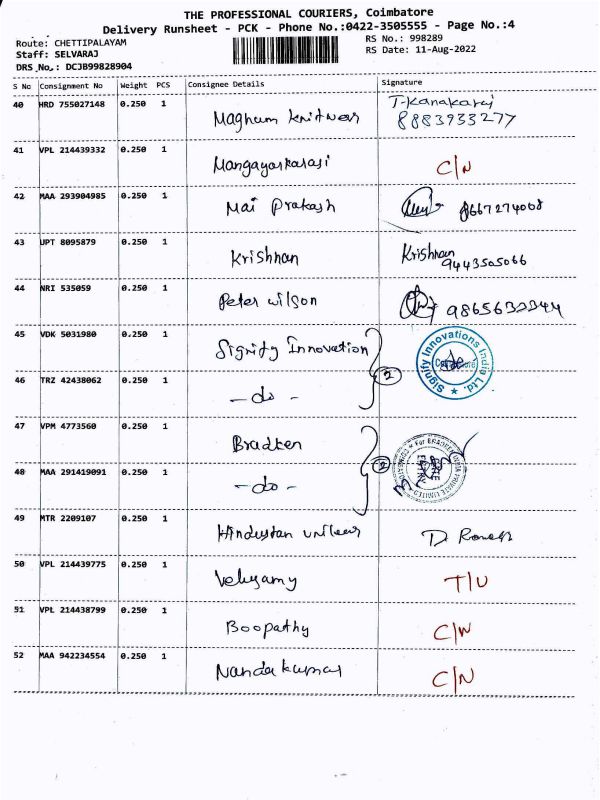 THE PROFESSIONAL COURIERS, Coimbatore
Delivery Runsheet - PCK - Phone No.:0422-3505555 - Page No.:4
Route: CHETTIPALAYAM RS No.: 998289
Staff: SELVARAJ RS Date: 11-Aug-2022
DRS No.: DCJB99828904
S No Consignment No Weight PCS Consignee Details Signature
40 HRD 755027148 0.250 1 Maghum Knitwear T-Kanakaraj
8883933277
41 VPL 214439332 0.250 1 Mangayarkarasi C/N
42 MAA 293904985 0.250 1 Mai Prakash 8667274008
43 UPT 8095879 0.250 1 Krishnan Krishnan
9443505066
44 NRI 535059 0.250 1 Peter Wilson 9865632344
45 VDK 5031980 0.250 1 Signify Innovation 2 Signify Innovations India Ltd.
46 TRZ 42438062 0.250 1 -do-
47 VPM 4773560 0.250 1 Bradken 2
48 MAA 291419091 0.250 1 -do-
49 MTR 2209107 0.250 1 Hindustan unilever D Ramesh
50 VPL 214439775 0.250 1 Veluyamy T/U
51 VPL 214438799 0.250 1 Boopathy C/N
52 MAA 942234554 0.250 1 Nandakumar C/N